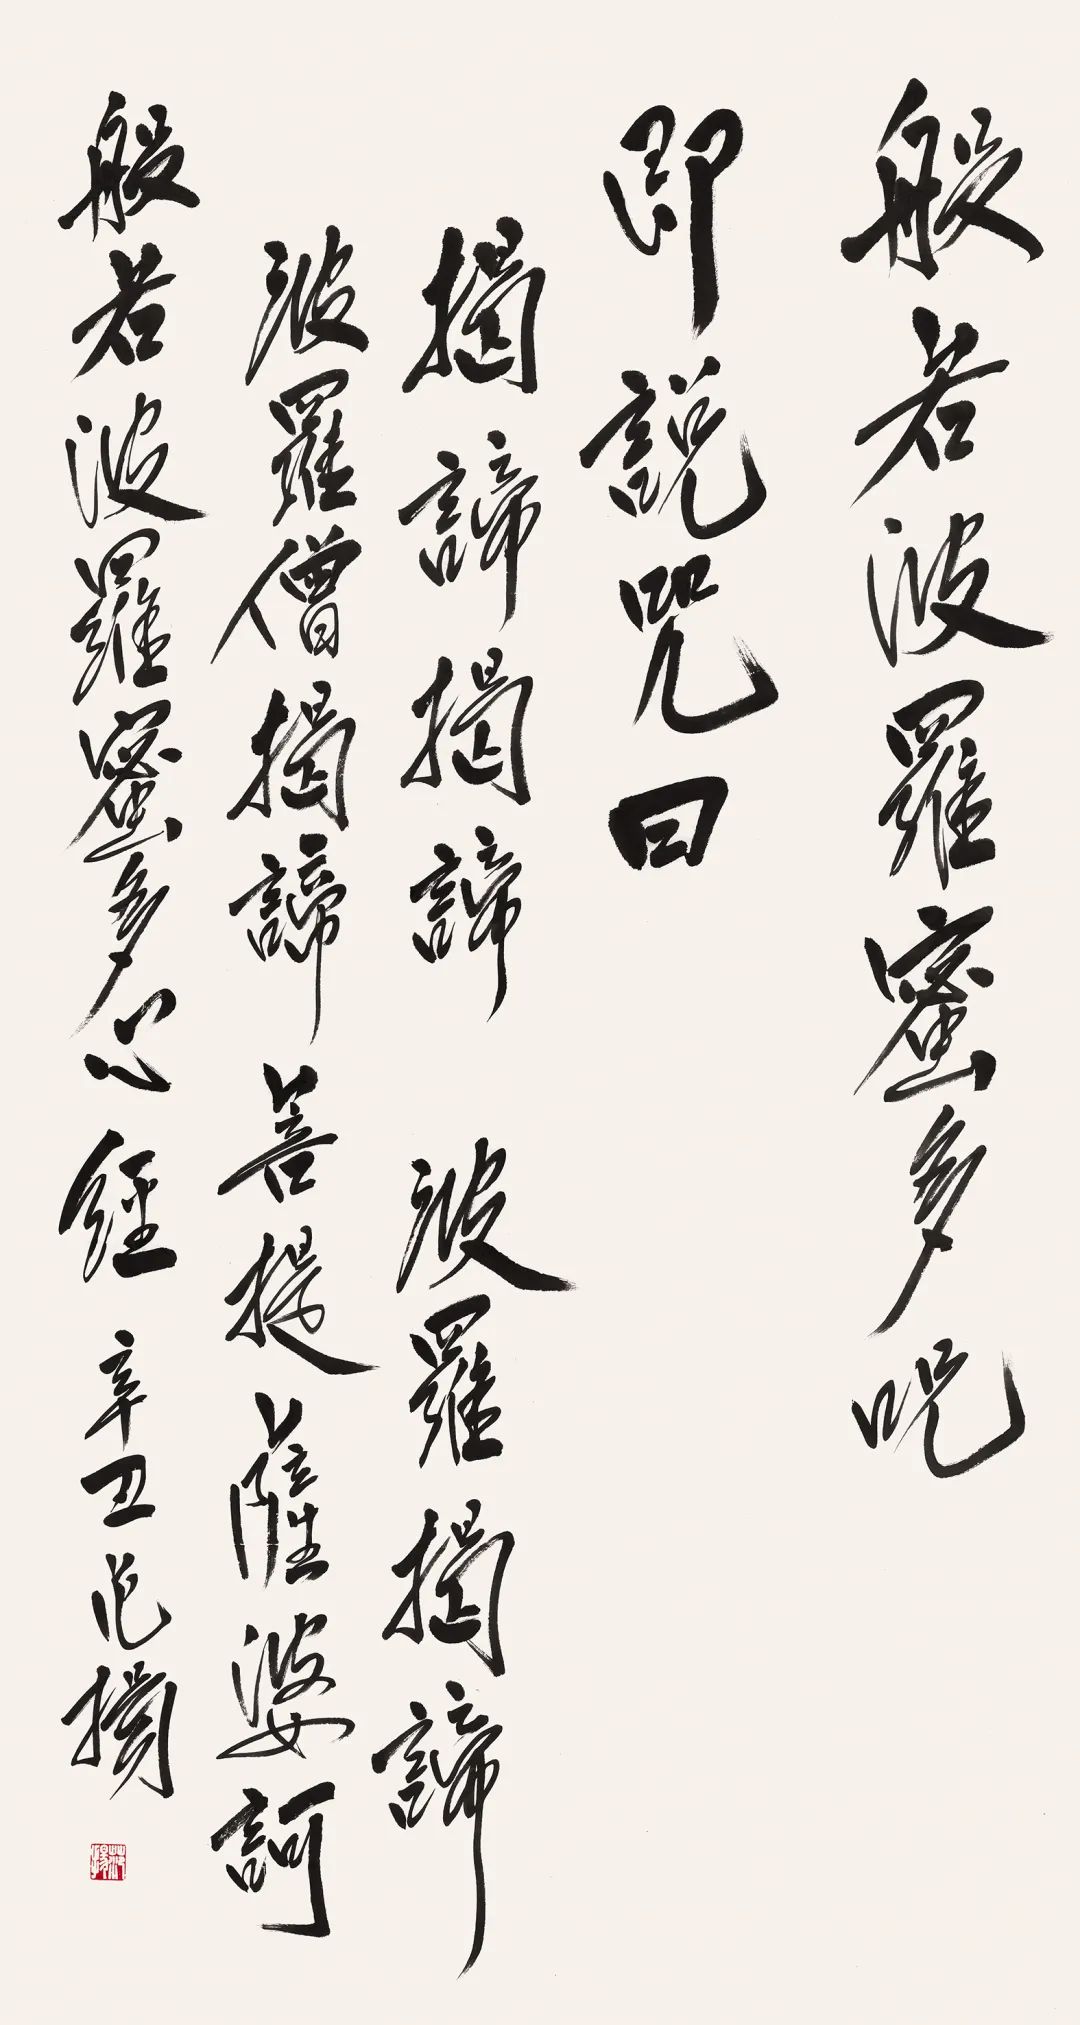 般若波羅蜜多咒
即說咒曰
揭諦揭諦 波羅揭諦
波羅僧揭諦菩提薩婆訶
般若波羅蜜多心經 辛丑范揚
范揚